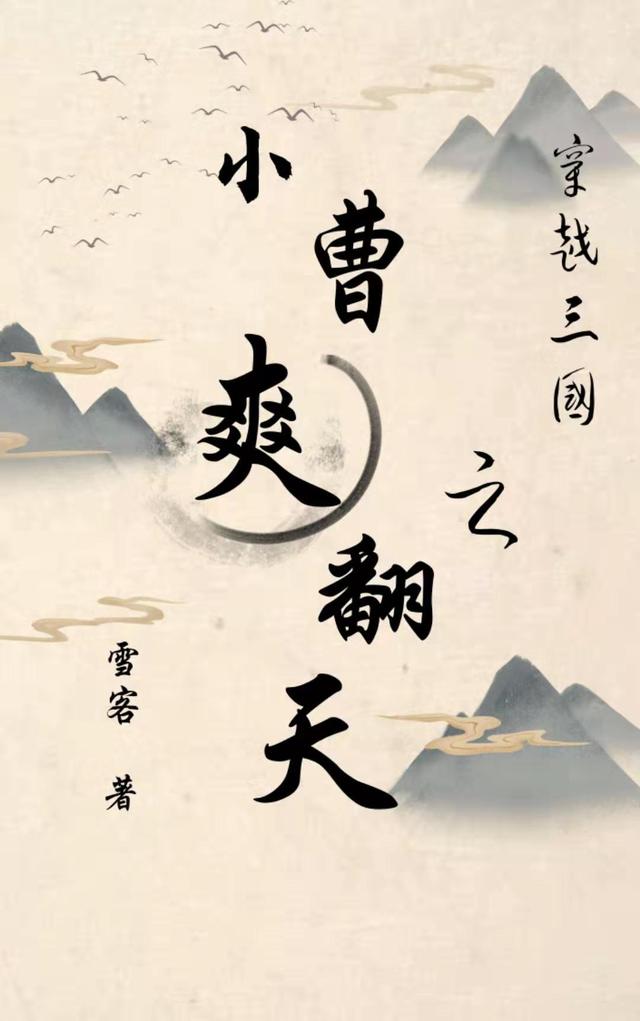 穿越三國
之
小曹爽翻天
雪客 著